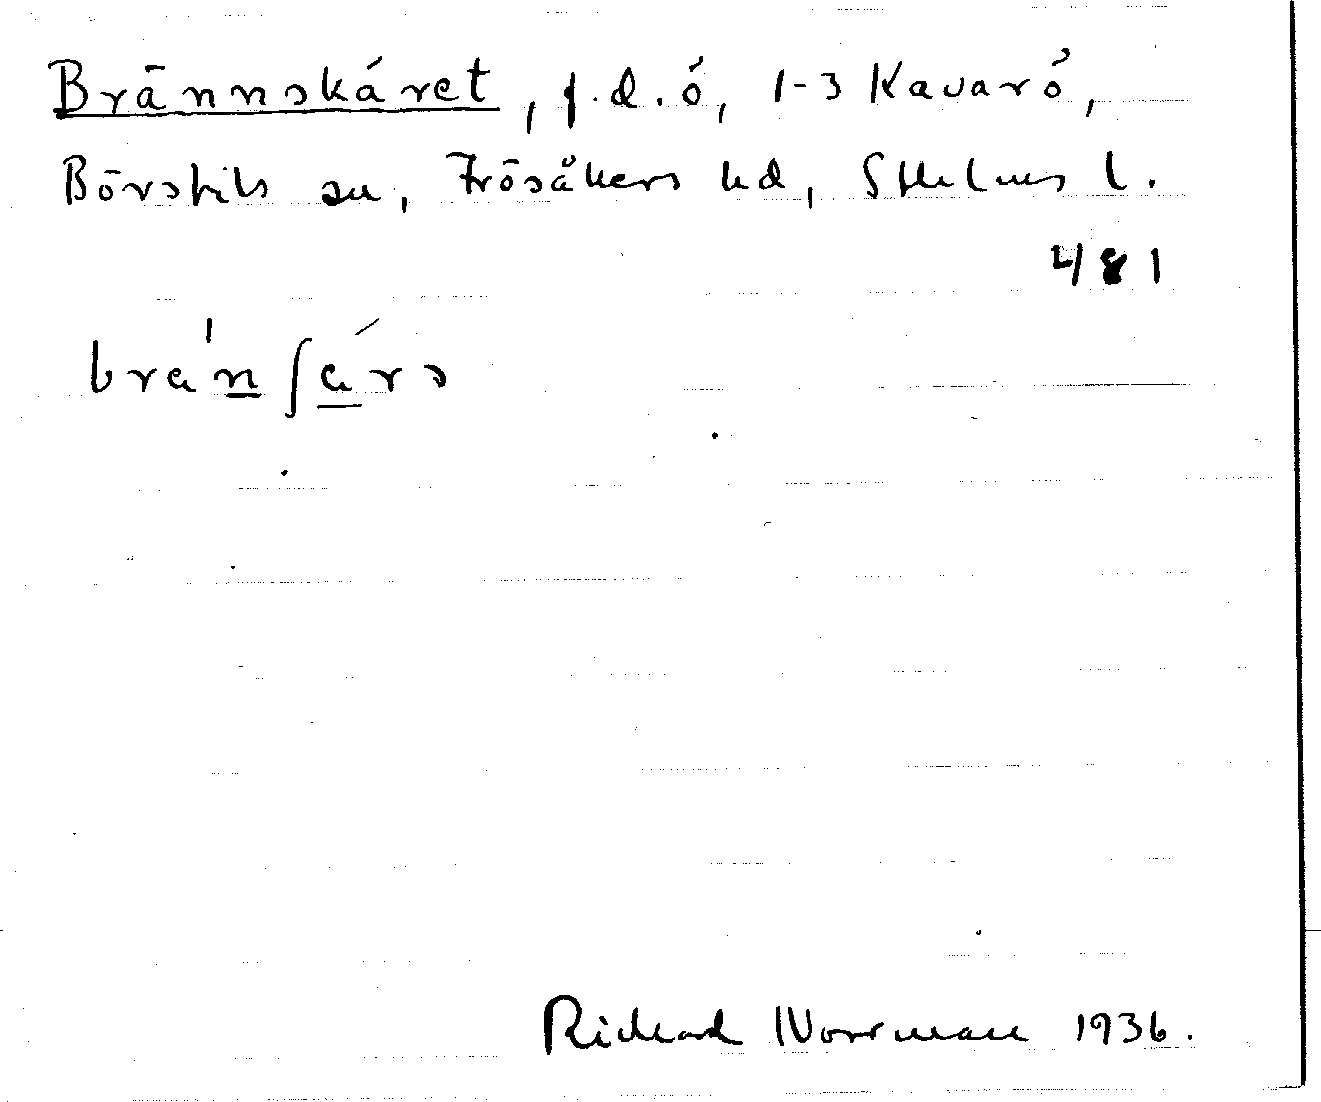 Brännskäret, f.d. ö, 1-3 Kavarö,
Börstils sn, Frösåkers hd, Sthlms l.
481
Richard Norrman 1936.